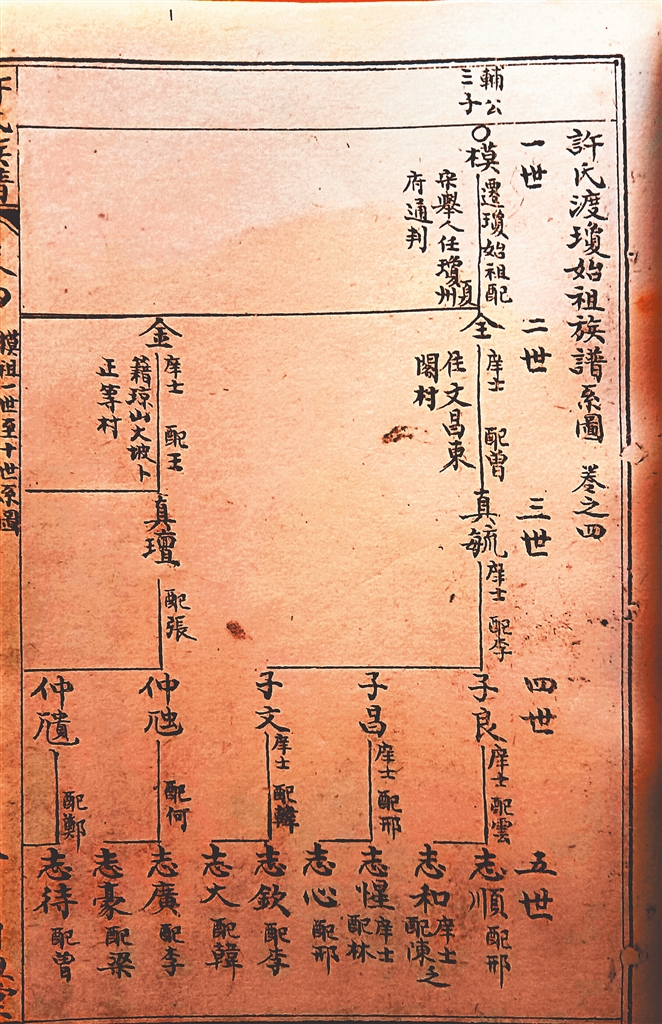 許氏渡瓊始祖族譜系圖 巻之四
一世
二世
三世
四世
五世
輔公
三子
模 遷瓊始祖配夏
宋舉人任瓊州
府通判
全 庠士 配曾
住文昌東
閣村
金 庠士 配王
籍琼山大坡卜
正等村
真毓 庠士 配李
真璮 配張
子良 庠士 配雲
子昌 庠士 配邢
子文 庠士 配韓
仲 配何
仲 配鄭
志順 配邢
志和 庠士 配陳之
志惺 庠士 配林
志心 配邢
志欽 配李
志大 配韓
志廣 配李
志豪 配梁
志待 配曾
許氏族譜
模祖一世至十世系圖